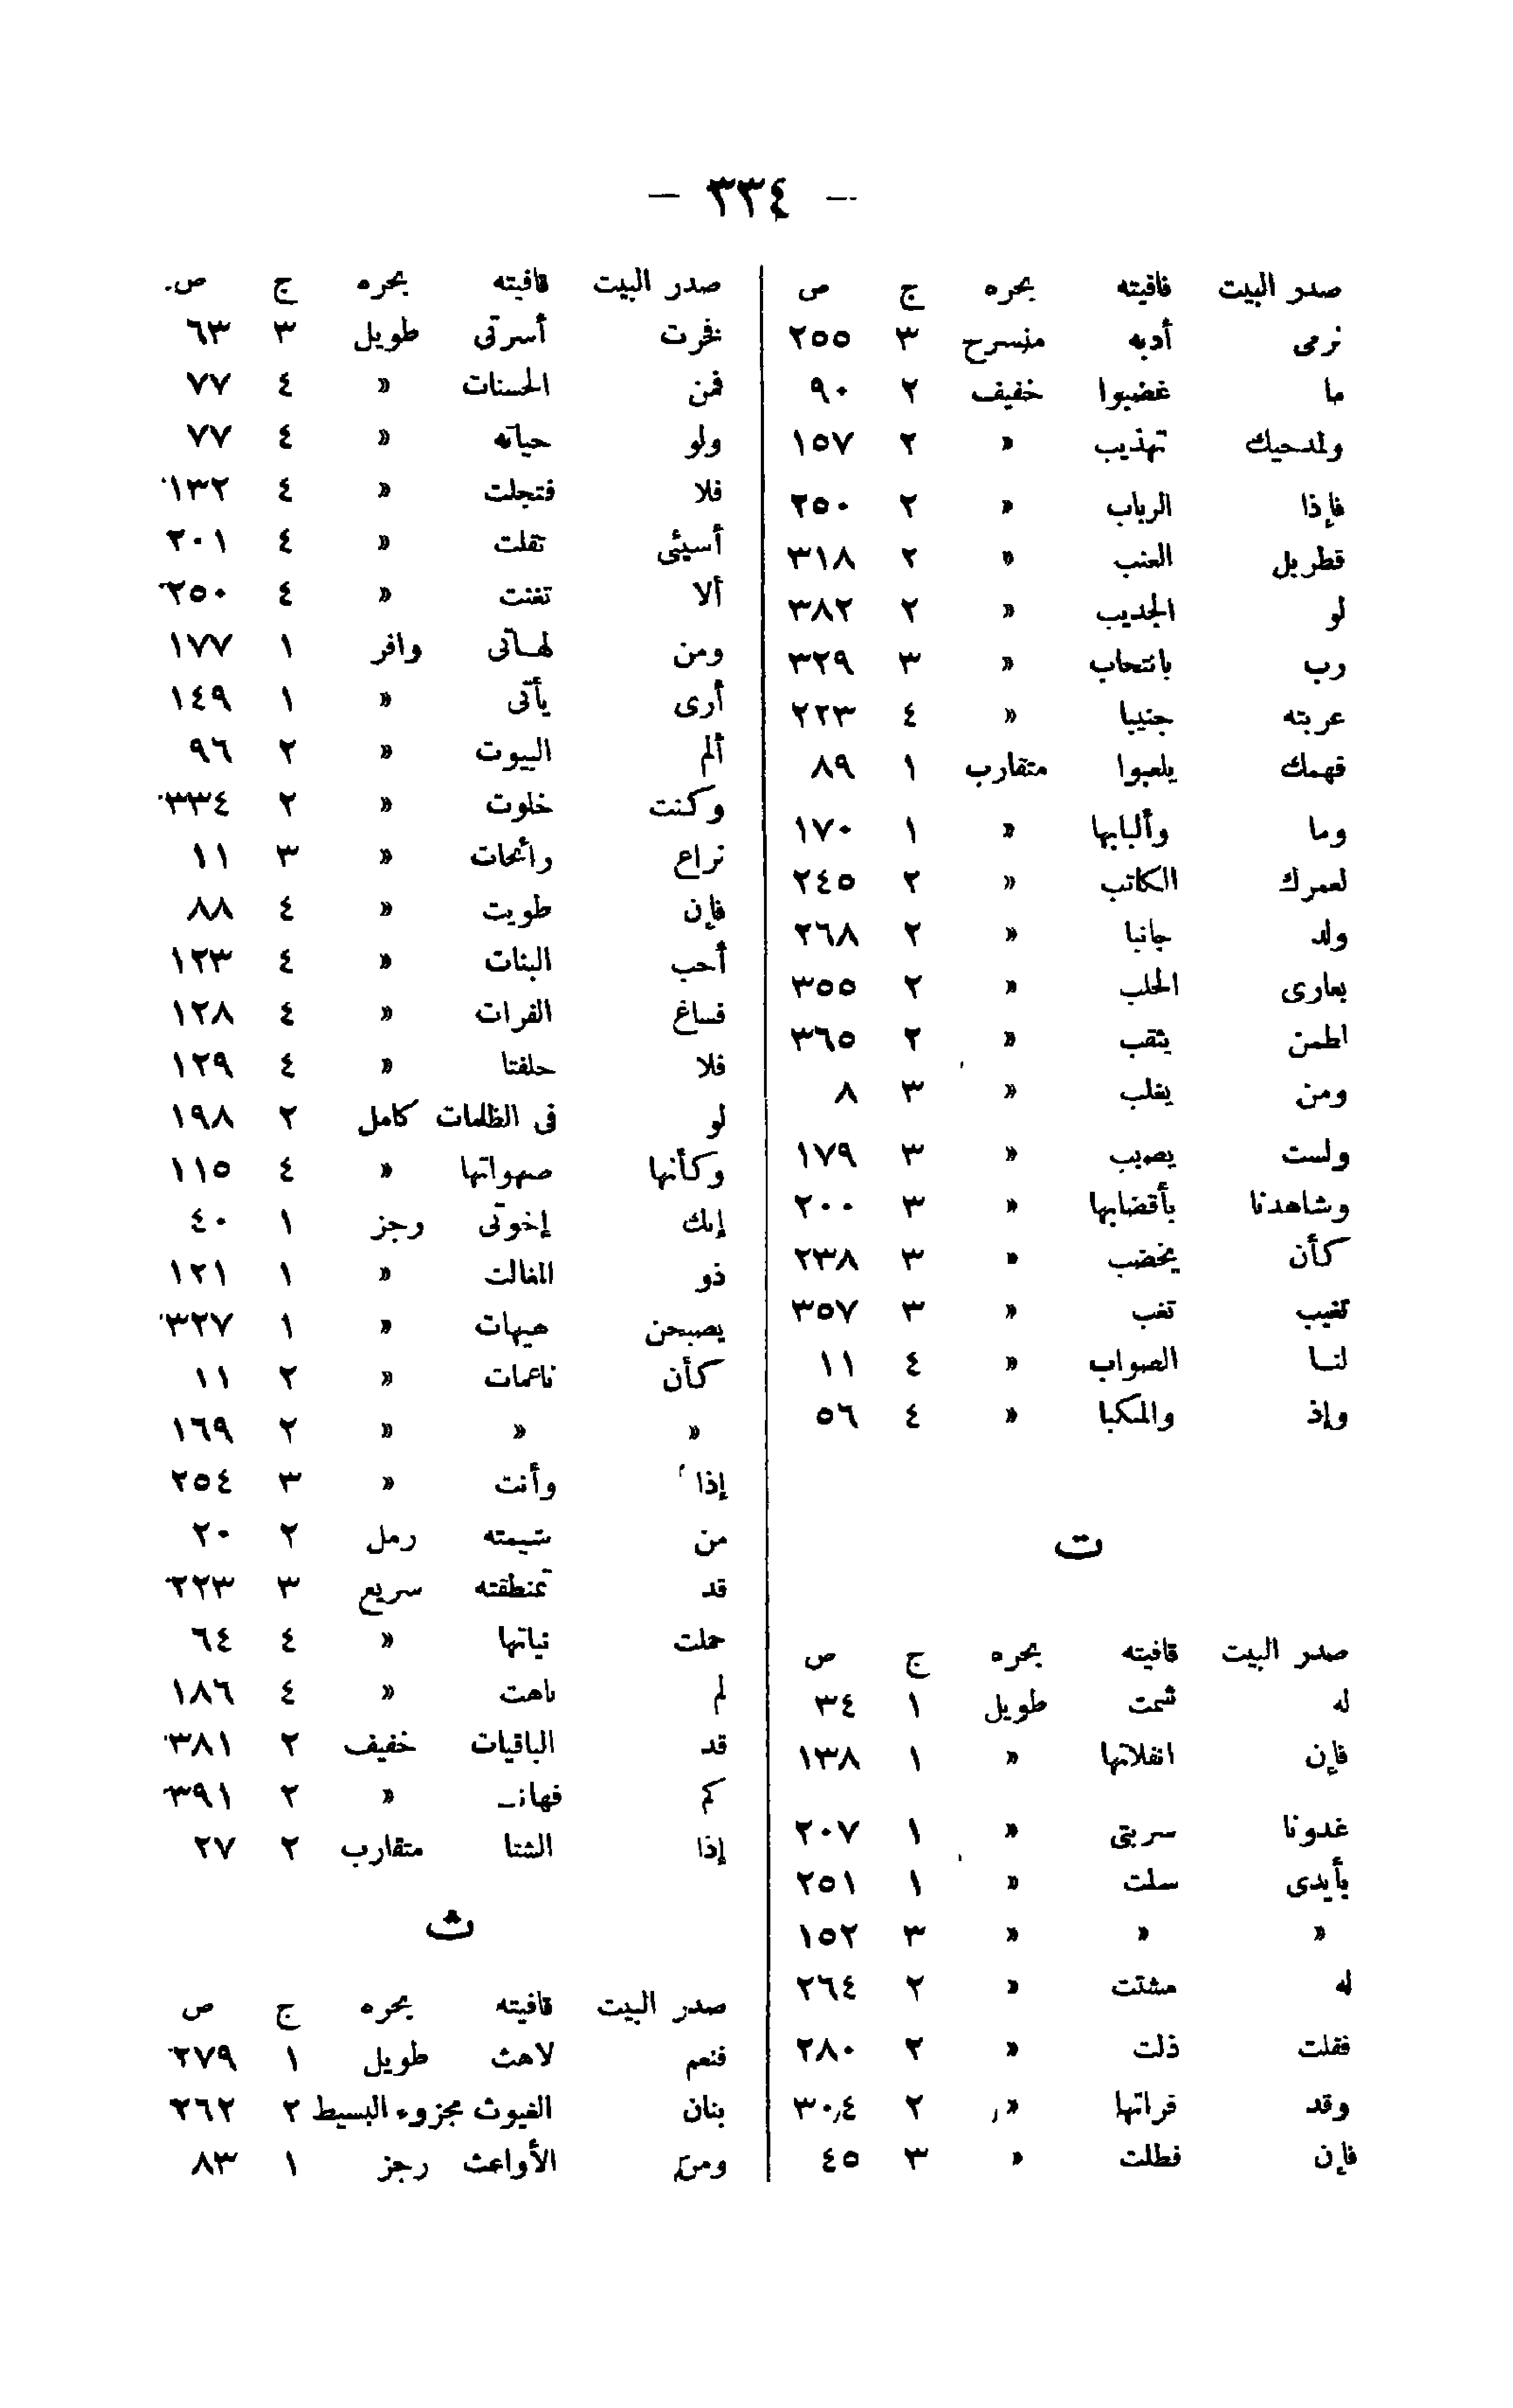 — ٣٣٤ —
صدر البيت قافيته بحره ج ص
نرمى أدبه منسرح ٣ ٢٥٥
ما غضبوا خفيف ٢ ٩٠
ولمدحيك تهذيب » ٢ ١٥٧
فإذا الرباب » ٢ ٢٥٠
قطربل العنب » ٢ ٣١٨
لو الجديب » ٢ ٣٨٢
رب بانتحاب » ٣ ٣٢٩
عربته جنيبا » ٤ ٢٢٣
فهمك يلعبوا متقارب ١ ٨٩
وما وألبابها » ١ ١٧٠
لعمرك الكاتب » ٢ ٢٤٥
ولد جانبا » ٢ ٢٦٨
يعارى الحلب » ٢ ٣٥٥
اطمن يثقب » ٢ ٣٦٥
ومن يغلب » ٣ ٨
ولست يصيب » ٣ ١٧٩
وشاهدنا بأقضابها » ٣ ٢٠٠
كأن يخضب » ٣ ٢٣٨
كغيب تغب » ٣ ٣٥٧
لنا الصواب » ٤ ١١
وإذ والمكبا » ٤ ٥٦
ت
صدر البيت قافيته بحره ج ص
له شمت طويل ١ ٣٤
فإن انفلاتها » ١ ١٣٨
غدونا سربتى » ١ ٢٠٧
بأيدى سلت » ١ ٢٥١
» » » ٣ ١٥٢
له مشتت » ٢ ٢٦٤
فقلت ذلت » ٢ ٢٨٠
وقد قراتها » ٢ ٣٠٤
فإن فطلت » ٣ ٤٥
صدر البيت قافيته بحره ج ص
فخرت أسرتى طويل ٣ ٦٣
فمن الحسنات » ٤ ٧٧
ولو حياته » ٤ ٧٧
فلا فتجلت » ٤ ١٣٢
أسيئى تقلت » ٤ ٢٠١
ألا تغنت » ٤ ٢٥٠
ومن لهاتى وافر ١ ١٧٧
أرى يأتى » ١ ١٤٩
ألم البيوت » ٢ ٩٦
وكنت خلوت » ٢ ٣٣٤
نراع رائحات » ٣ ١١
فإن طويت » ٤ ٨٨
أحب البنات » ٤ ١٢٣
فساغ الفرات » ٤ ١٢٨
فلا حلفتا » ٤ ١٢٩
لو فى الظلمات كامل ٢ ١٩٨
وكأنها صهواتها » ٤ ١١٥
إنك إخوتى رجز ١ ٤٠
ذو المغالت » ١ ١٢١
يصبحن هيهات » ١ ٣٢٧
كأن ناعمات » ٢ ١١
» » » ٢ ١٦٩
إذا وأنت » ٣ ٢٥٤
من شيمته رمل ٢ ٢٠
قد تمنطقته سريع ٣ ٢٢٣
حملت نياتها » ٤ ٦٤
لم باهت » ٤ ١٨٦
قد الباقيات خفيف ٢ ٣٨١
كم فهاتـ » ٢ ٣٩١
إذا الشتا متقارب ٢ ٢٧
ث
صدر البيت قافيته بحره ج ص
فنعم لاهث طويل ١ ٢٧٩
بنان الغيوث مجزوء البسيط ٢ ٢٦٢
ومن الأواعث رجز ١ ٨٣